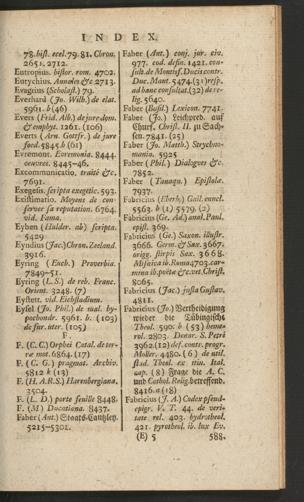 INDEX.
78. hist. eccl. 79. 81. Chron.
2651. 2712.
Eutropius. histor. rom. 4702.
Eutychius. Annales &c 2713.
Evagrius (Scholast.) 79.
Everhard (Jo. Wilh.) de elat.
5961. b (46)
Evers (Frid. Alb.) de jure dom.
& emphyt. 1261. (106)
Everts (Arn. Gottfr.) de jure
foed. 5845. b (61)
Evremont. Evremonia. 8444.
oeuvres. 8445-46.
Excommunicatio, traité &c.
7691.
Exegetic. scripta exegetic. 593.
Existimatio. Moyens de con-
server sa reputation. 6764.
vid. Fama.
Eyben (Hulder. ab) scripta.
5429.
Eyndius (Jac.) Chron. Zeeland.
3916.
Eyring (Euch.) Proverbia.
7849-51.
Eyring (L. S.) de reb. Franc.
Orient. 3248. (7)
Eystett. vid. Eichstadium.
Eysel (Jo. Phil.) de mal. hy-
pochondr. 5961. b. (103)
de fur. uter. (105)
F. (C. C.) Orphei Catal. de ter-
ræ mot. 6864. (17)
F. (C. G.) pragmat. Archiv.
5812 b (13)
F. (H. A. R. S.) Harenbergiana.
3504.
F. (L. D.) porte feuille 8448.
F. (M) Ducatiana. 8437.
Faber (Ant.) Staats-Cantzley.
5215-5301.
Faber (Ant.) conj. jur. civ.
977. cod. defin. 1421. con-
sult. de Montisf. Ducis contr.
Duc. Mant. 5474. (31) resp.
ad hanc consultat. (32) de re-
lig. 5640.
Faber (Basil.) Lexicon. 7741.
Faber (Jo.) Leichpred. auf
Churf. Christ. II. zu Sach-
sen. 7841. (25)
Faber (Jo. Matth.) Strychno-
mania. 5925
Faber (Phil.) Dialogues &c.
7852.
Faber (Tanaqu.) Epistolæ.
7937.
Fabricius (Eberh.) Gail. enucl.
5563. b (1) 5579. (2)
Fabricius (Ge. Ad.) amal. Paul.
epist. 369.
Fabricius (Ge.) Saxon. illustr.
3666. Germ. & Sax. 3667.
origg. stirpis Sax. 3668.
Misnica ib. Roma 4703. car-
mina ib. poetæ &c. vet. Christ.
8065.
Fabricius (Jac.) justa Gustav.
4811.
Fabricius (Jo.) Vertheidigung
wieder die Tübingische
Theol. 590. b (53) hemo-
rol. 2803. Denar. S. Petri
3962 (12) def. contr. progr.
Moller. 4480. (6) de util.
stud. Theol. ex itin. Ital.
cap. (8) Frage die A. C.
und Cathol. Relig. betreffend.
8416. a (18)
Fabricius (J. A.) Codex pseud-
epigr. V. T. 44. de veri-
tate rel. 403. hydrotheol.
421. pyrotheol. ib. lux Ev.
(E) 5
588.